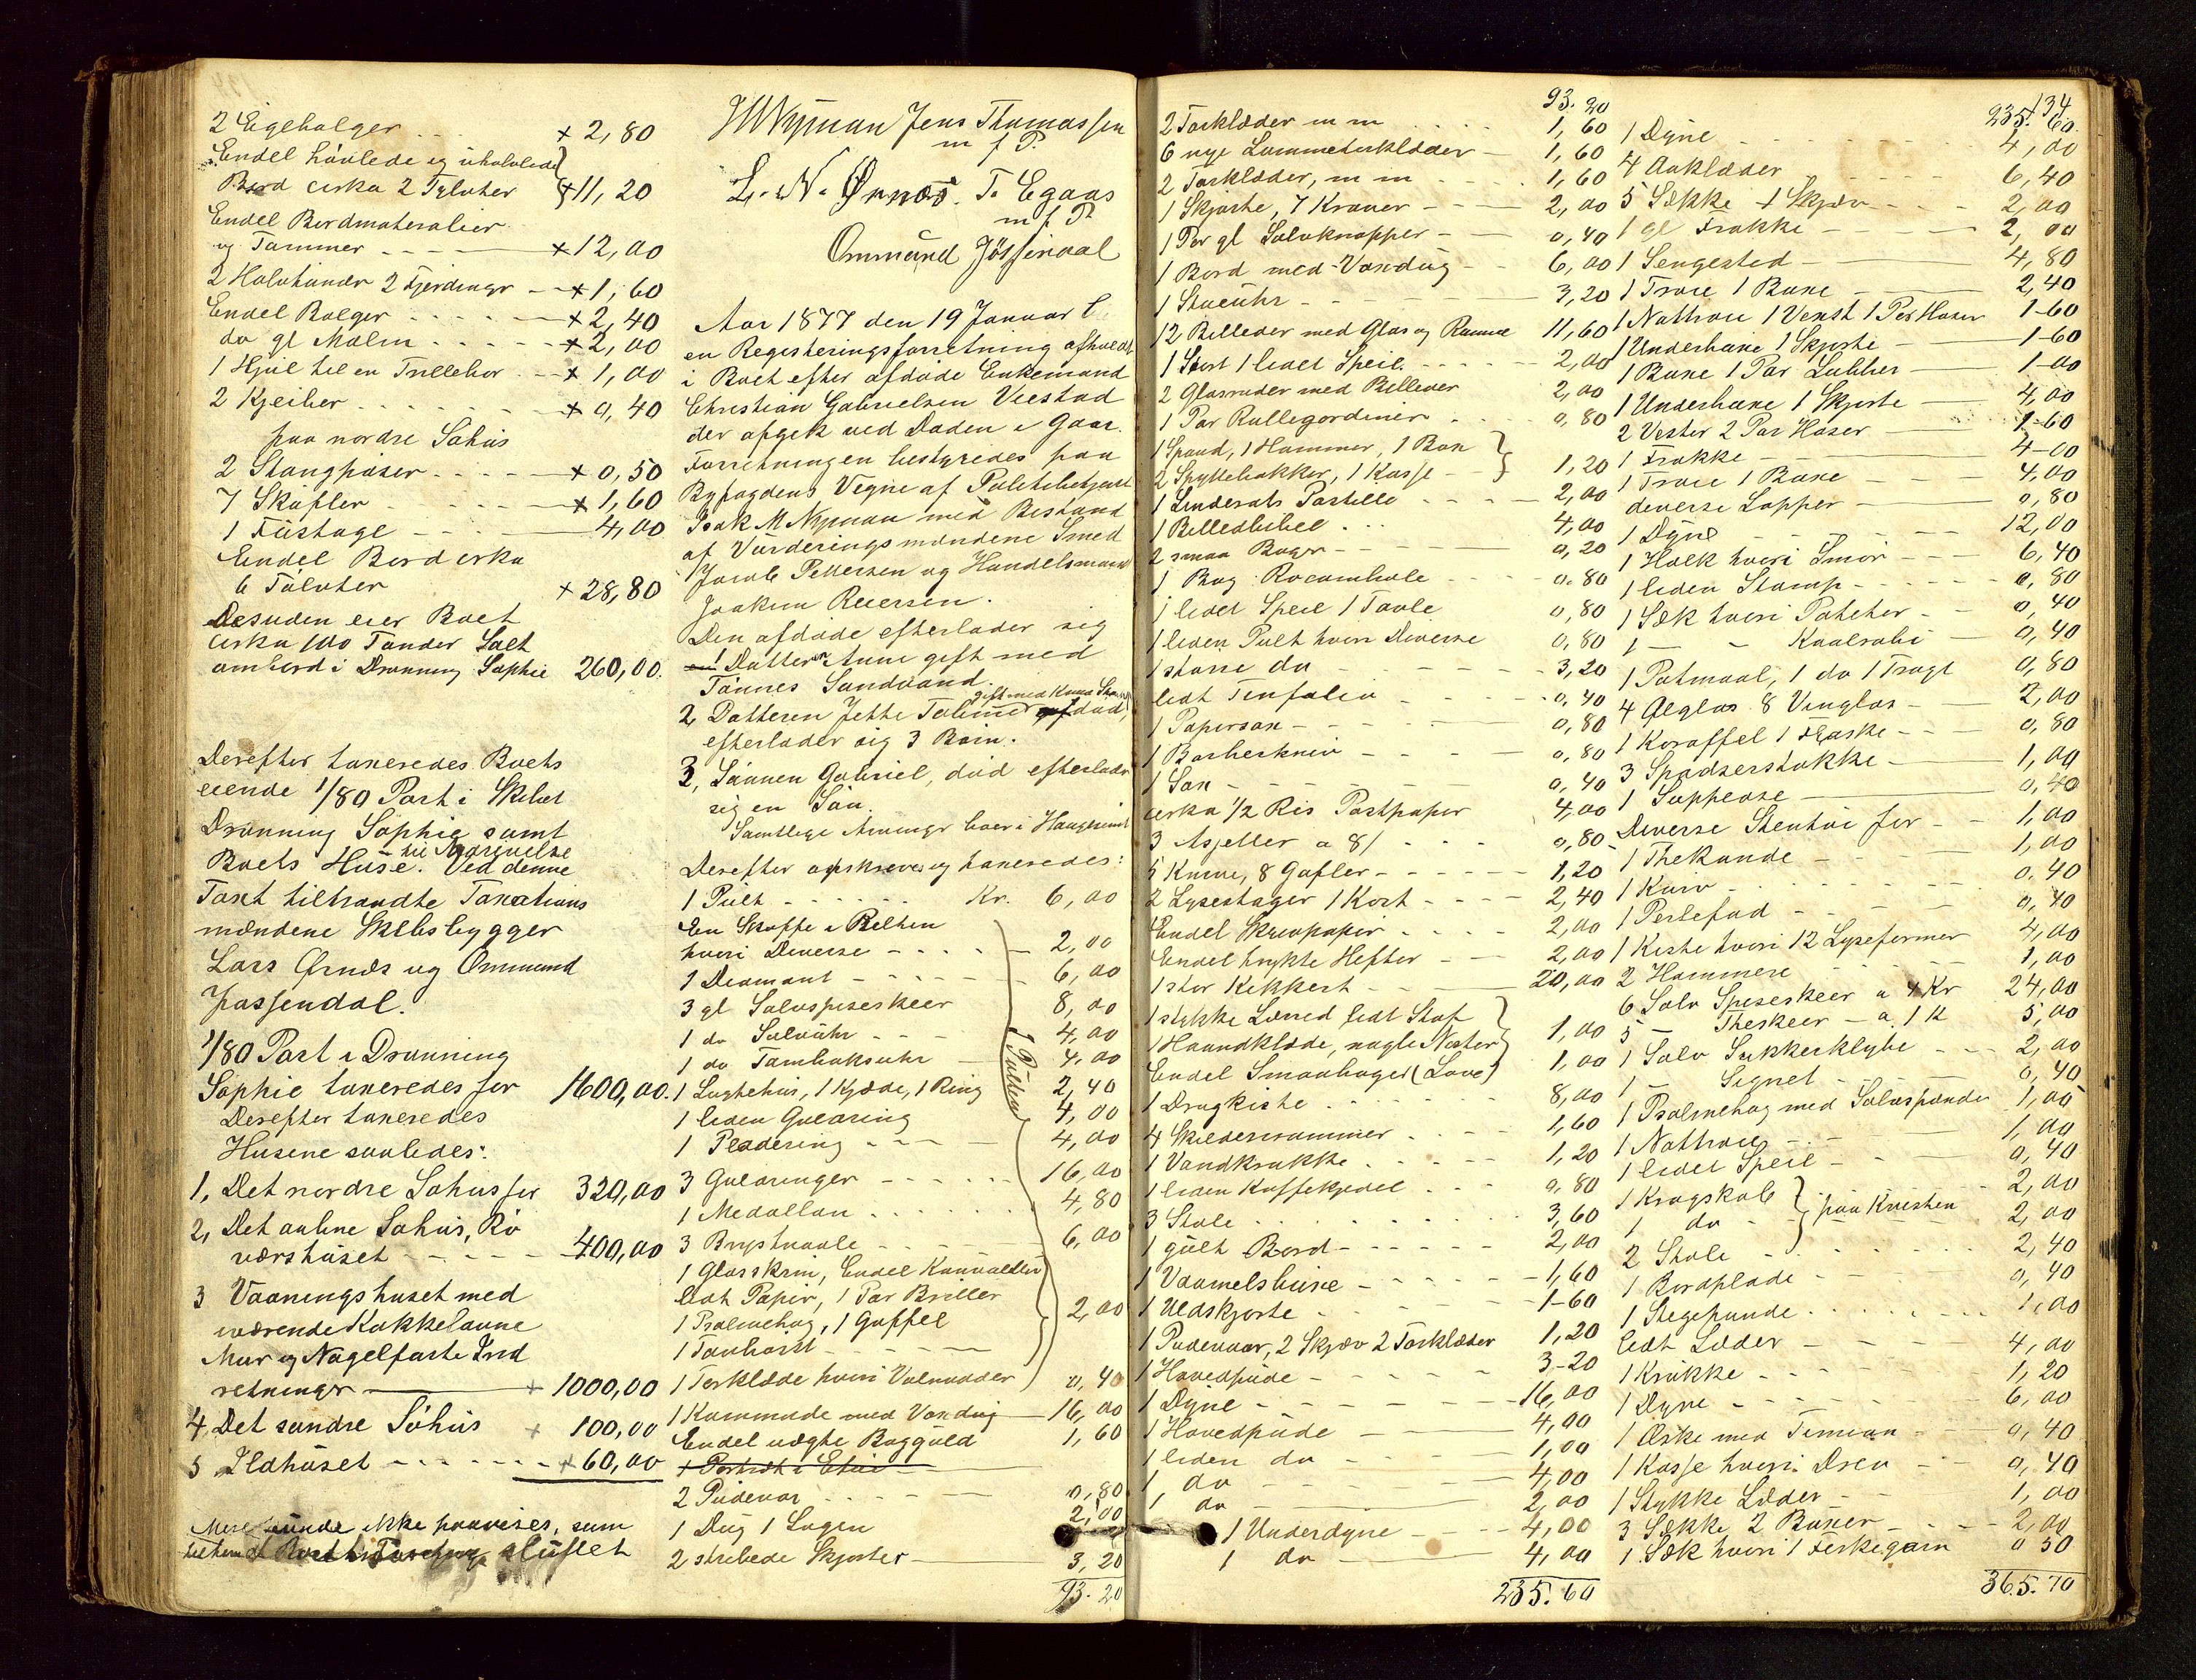 2 Egebolger . . . × 2,80
Endel hövlede og uhøvlede
Bord cirka 2 Tylvter ×11,20
Endel Bordmaterialier
og Tømmer - - - ×12,00
2 Halvtønder 2 Fjerdinger - ×1,60
Endel Bolger . . . . - ×2,40
do gl Malin . . . . - ×2,00
1 Hjul til en Trillebør - - × 1,00
2 Kjeiber . . . . . × 0,40
paa nordre Søhus
2 Stangpøser - - - × 0,50
7 Skufler - - - × 1,60
1 Fustage - - - 4,00
Endel Bord cirka
6 Tølvter × 28,80
Desuden eier Boet
cirka 100 Tønder Salt
ombord i Dronning Sophie 260,00.
Derefter taxeredes Boets
eiende 1/80 Part i Skibet
Dronning Sophie samt
Boets Huse. Ved denne
Taxt tiltraadte Taxations
mændene Skibsbygger
Lars Ørnæs og Ommund
Jøssendal.
1/80 Part i Dronning
Sophie taxeredes for 1600,00.
Derefter taxeredes
Husene saaledes:
1, Det nordre Søhus for 320,00
2, Det aabne Søhus, Rø
værshuset - - - 400,00
3 Vaaningshuset med
værende Kakkelovne
Mur og Nagelfaste Ind
retninger + 1000,00
4, Det søndre Søhus + 100,00
5 Ildhuset - - - + 60,00
Mere kunde ikke paavises, som
Boet sluttet
IMNyman Jens Thomassen
m f P.
L. N. Ørnæs. T. Egaas
m f P
Ommund Jössendal
Aar 1877 den 19 Januar b
en Registeringsforretning afholdt
i Boet efter afdøde Enkemand
Christian Gabrielsen Viestad
der afgik ved Døden i Gaar.
Forretningen bestyredes paa
Byfogdens Vegne af Politibetjent
Isak M Nyman med Bistand
af Vurderingsmændene Smed
Jacob Pettersen og Handelsmand
Joakim Reiersen.
Den afdøde efterlader sig
1 Datteren Anne gift med
Tönnes Sandvand.
gift med Knud
2, Datteren Jette Taline død,
efterlader sig 3 Börn.
3, Sönnen Gabriel, död efterlader
sig en Sön.
Samtlige Arvinger boer i Haugesund
Derefter opskreves og taxeredes:
1 Pult - - - Kr. 6,00
En Skuffe i Pulten
hvori Diverse - - - 2,00
1 Diamant - - - 6,00
3 gl Sølvspiseskeer 8,00
1 do Sølvuhr - - - 4,00
1 do Tombaksuhr 4,00
1 Lugtehus, 1 Kjæde, 1 Ring 2,40
1 liden Guldring 4,00
1 Pladering - - - 4,00
3 Guldringer - - - 16,00
1 Medallon . . . 4,80
3 Brystnaale - - - 6,00
1 Glasskrin, Endel Konvolutter
lidt Papir, 1 Par Briller
1 Psalmebog, 1 Gaffel 2,00
1 Tanbørst - - -
I Pulten
1 Tørklæde hvori Valnødder 0,40
1 Kommode med Voxdug 16,00
Endel uægte Bogguld 1,60
1 Portræt i Etui
2 Pudevar . . . 0,80
1 Dug 1 Lagen 2,00
2 stribede Skjorter 3,20
93.20
93.20
2 Tørklæder m m 1,60
6 nye Lommetørklæder 1,60
2 Tørklæder, m m 1,60
1 Skjorte, 7 Kraver 2,00
1 Par gl Sølvknapper 0,40
1 Bord med Voxdug 6,00
1 Stueuhr 3,20
12 Billeder med Glas og Ramme 11,60
1 Stort 1 lidet Speil. 2,00
2 Glasruder med Billeder 2,00
1 Par Rullegardiner 0,80
1 Spand, 1 Hammer, 1 Box
2 Spyttebakker, 1 Kasse 1,20
1 Linderots Postille 2,00
1 Billedbibel 4,00
2 smaa Bøger 0,20
1 Bog Rocambole 0,80
1 lidet Speil 1 Tavle 0,80
1 liden Pult hvori Diverse 0,80
1 større do 3,20
lidt Tinfolio 0,40
1 Papirsax 0,80
1 Barberkniv 0,80
1 Sax 0,40
cirka 1/2 Ris Postpapir 4,00
3 Asjetter a 8/ 0,80
5 Knive, 8 Gafler 1,20
2 Lysestager 1 Kort 2,40
Endel Skrivpapir 2,00
Endel trykte Hefter 2,00
1 stor Kikkert 20,00
1 stykke Lærred lidt Stof
1 Haandklæde, nogle Nøster 1,00
Endel Smaabøger (Love) 1,00
1 Dragkiste 8,00
4 Skilderirammer 1,60
1 Vandkrukke 1,20
1 liden Kaffekjedel 0,80
3 Stole 3,60
1 gult Bord 2,00
1 Vadmelsbuxe 1,60
1 Uldskjorte 1-60
1 Pudevaar, 2 Skjæv 2 Tørklæder 1,20
1 Hovedpude 3-20
1 Dyne 16,00
1 Hovedpude 4,00
1 liden do 1,00
1, do 4,00
1, do 2,00
1 Underdyne 4,00
1 do 4,00
235.60
134
235.60.
1 Dyne 4,00
4 Aaklæder 6,40
5 Sække 1 Skjæv 2,00
1 gl Frakke 2,00
1 Sengested 4,80
1 Trøie 1 Buxe 2,40
1 Nattroie 1 Vest 1 Par Hoser 1-60
1 Underbuxe 1 Skjorte 1-60
1 Buxe 1 Par Lubber 1-00
1 Underbuxe 1 Skjorte 4,00
2 Vester 2 Par Hoser 1-60
1 Frakke 4-00
1 Trøie 1 Buxe 4,00
diverse Lapper 0,80
1 Dyne 12,00
1 Holk hvori Smør 6,40
1 liden Stamp 0,80
1 Sæk hvori Poteter 0,40
1 - - Kaalrabi 0,40
1 Potmaal, 1 do 1 Tragt 0,80
4 Ølglas 8 Vinglas 2,00
1 Karaffel 1 Flaske 0,80
3 Spadserstokke 1,00
1 Suppeøse 0,40
Diverse Stentøi for 1,00
1 Thekande 1,00
1 Kurv 0,40
1 Perlefad 0,40
1 Kiste hvori 12 Lyseformer 4,00
2 Hammere 1,00
6 Sølv Spiseskeer a 4 Kr 24,00
5 - Theskeer - a 1 K 5,00
1 Sølv Sukkerklybe 2,00
1 - Signet 0,40
1 Psalmebog med Sølvspænde 1,00
1 Nattroie 1,00
1 lidet Speil 0,40
1 Kragskab } paa Kvisten 2,00
1 do 2,00
2 Stole 2,40
1 Bordplade 0,40
1 Stegepande 1,00
lidt Læder 4,00
1 Krukke 1,20
1 Dyne 6,00
1 Æske med Timian 0,40
1 Kasse hvori Drev 0,40
1 Stykke Læder 1,00
3 Sække 2 Buxer 2,00
1 Sæk hvori 1 Fiskegarn 0 50
365.70